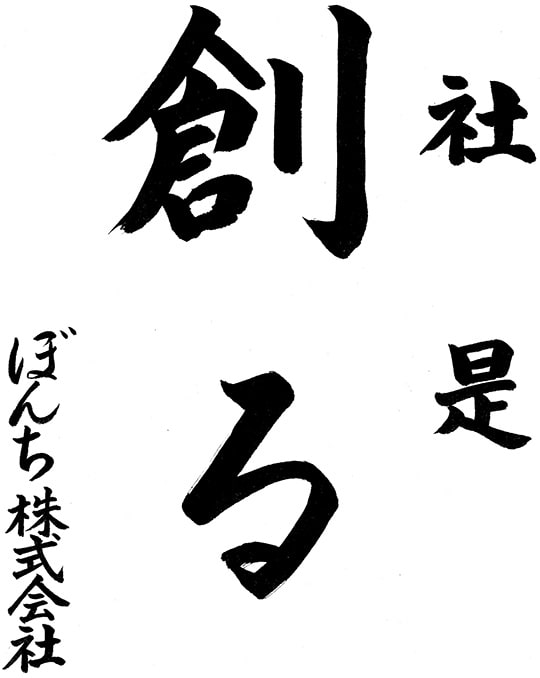 社是
創る
ぼんち株式会社